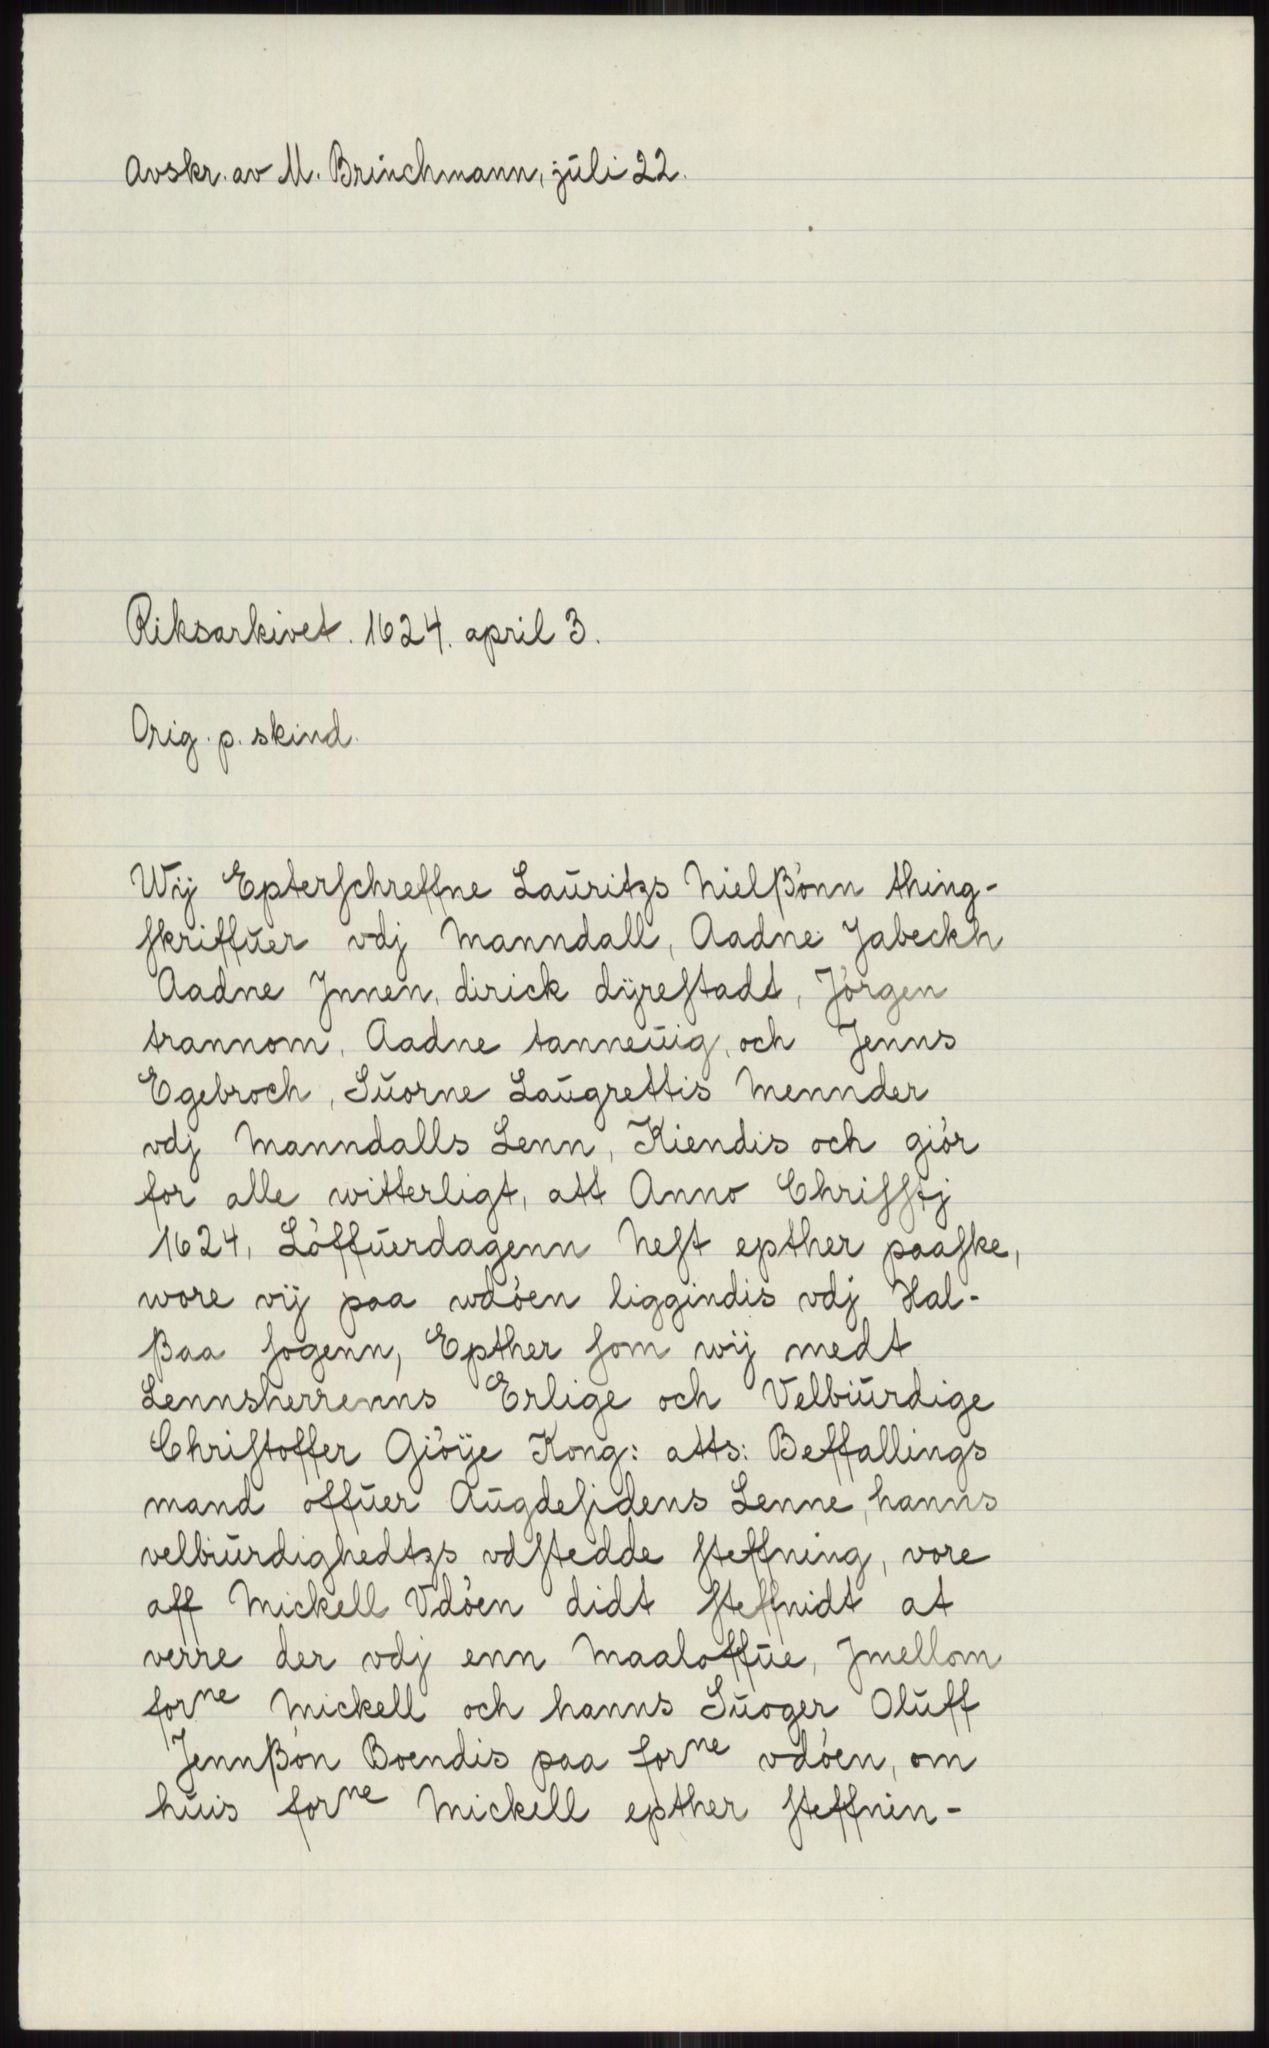 Avskr. av M. Brinchmann, juli 22.
Riksarkivet. 1624. april 3.
Orig. p. skind.
Wij Epterschreffne Lauritzs Nielßònn thing-
skriffuer vdj Manndall, Aadne Jabeckh
Aadne Jnnen, dirick dÿrestadt, Jòrgen
trannom, Aadne tanneuig, och Jenns
Egebroch, Suorne Laugrettis Mennder
vdj Manndalls Lenn, Kiendis och giòr
for alle witterligt, att Anno Christj
1624, Lòffuerdagenn Nest epther paaske,
wore vij paa wdòen liggindis vdj Hal-
ßaa sogenn, Epther som wij medt
Lennsherrenns Erlige och Velbiurdige
Christoffer Giòÿe Kong: atts: Beffallings
mand offuer Augdesidens Lenne, hanns
velbiurdighedtzs vdstedde steffning, vore
aff Mickell Vdòen didt steffnidt at
verre der vdj enn Maaloffue, Jmellom
forne Mickell och hanns Suoger Oluff
Jennßòn Boendis paa forne vdòen, om
huis forne Mickell epther steffnin-